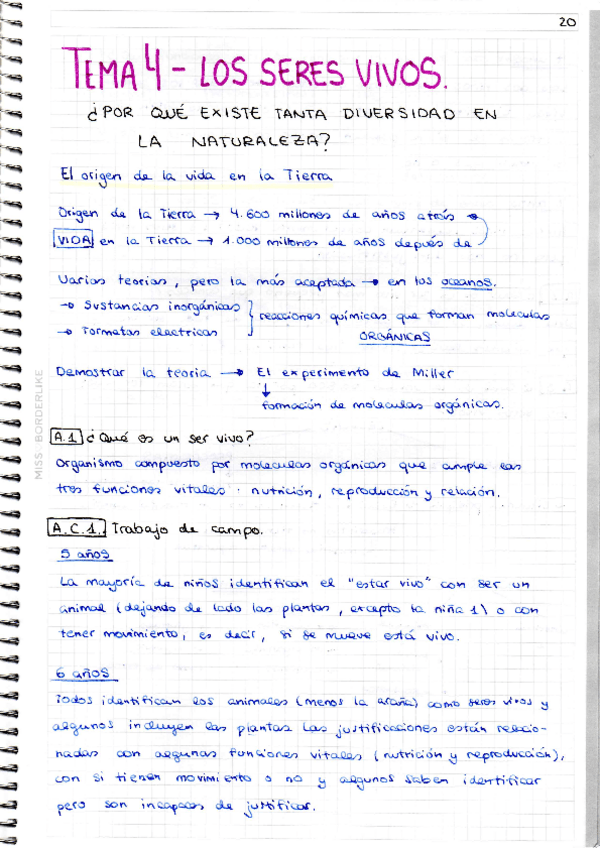 20
TEMA 4 - LOS SERES VIVOS.
¿POR QUÉ EXISTE TANTA DIVERSIDAD EN
LA NATURALEZA?
El origen de la vida en la Tierra
Origen de la Tierra → 4.600 millones de años atrás
VIDA en la Tierra → 1.000 millones de años después de
Varias teorías, pero la más aceptada → en los oceanos.
→ Sustancias inorgánicas } reacciones químicas que forman moleculas
→ Tormetas electricas ORGÁNICAS
Demostrar la teoria → El experimento de Miller
↓
formación de moleculas orgánicas.
A.1 ¿Qué es un ser vivo?
Organismo compuesto por moleculas orgánicas que cumple las
tres funciones vitales: nutrición, reproducción y relación.
A.C.1. Trabajo de campo.
5 años
La mayoría de niños identifican el "estar vivo" con ser un
animal (dejando de lado las plantas, excepto la niña 1) o con
tener movimiento, es decir, si se mueve está vivo.
6 años
Todos identifican los animales (menos la araña) como seres vivos y
algunos incluyen las plantas. Las justificaciones están relacio-
nadas con algunas funciones vitales (nutrición y reproducción),
con si tienen movimiento o no y algunos saben identificar
pero son incapaces de justificar.
MISS BORDERLIKE